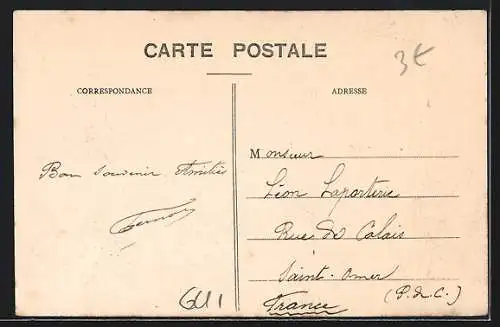 CARTE POSTALE
3€
CORRESPONDANCE
ADRESSE
Bon Souvenir Amitiés
Monsieur
Léon Laporterie
Rue de Calais
Saint-Omer
(P. de C.)
France